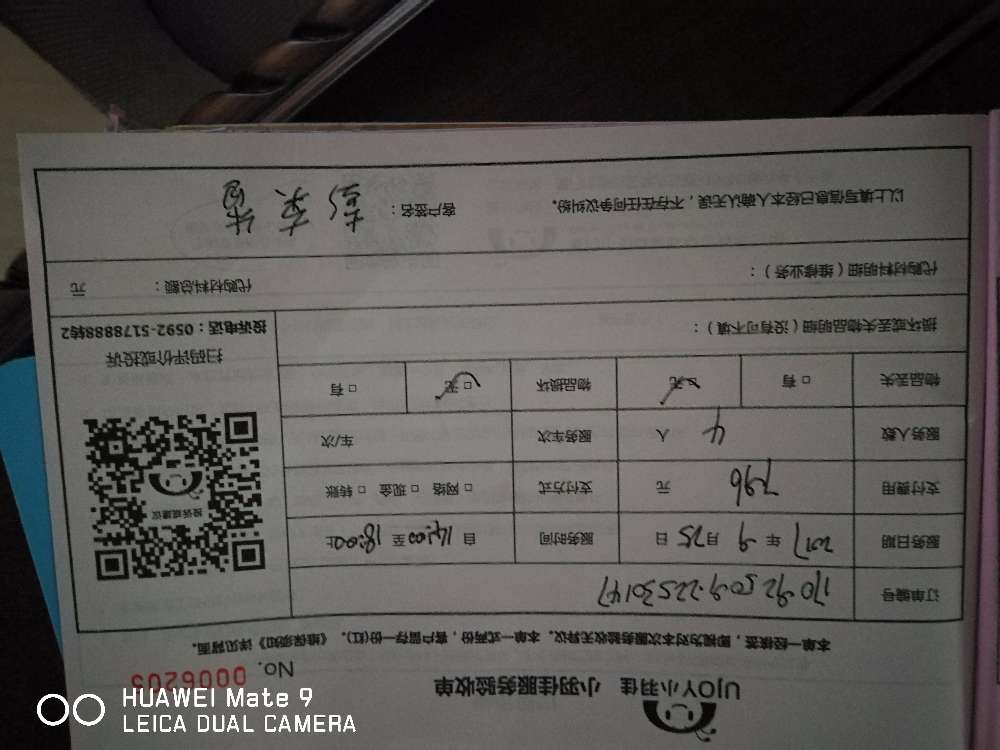 UJOY小羽佳 小羽佳服务验收单
No. 0006205
本单一经核签，即视为对本次服务验收无异议。本单一式两份，客户留存一份(红)。《维保须知》详见背面。
订单编号
服务日期 2017 年 9 月 25 日 服务时间 自 14:00 至 18:00止
支付费用 796 元 支付方式 □ 网络 □ 现金 □ 转账
服务人数 4 人 服务车次 车/次
物品丢失 □ 有 □ 无 物品损坏 □ 无 □ 有
损坏或丢失物品明细（没有可不填）：
投诉或建议
扫码评价或投诉
投诉电话：0592-5178888转2
代购材料明细（维修业务）： 代购材料总额： 元
以上填写信息已经本人确认无误，不存在任何争议纠纷。 客户签名：
HUAWEI Mate 9
LEICA DUAL CAMERA